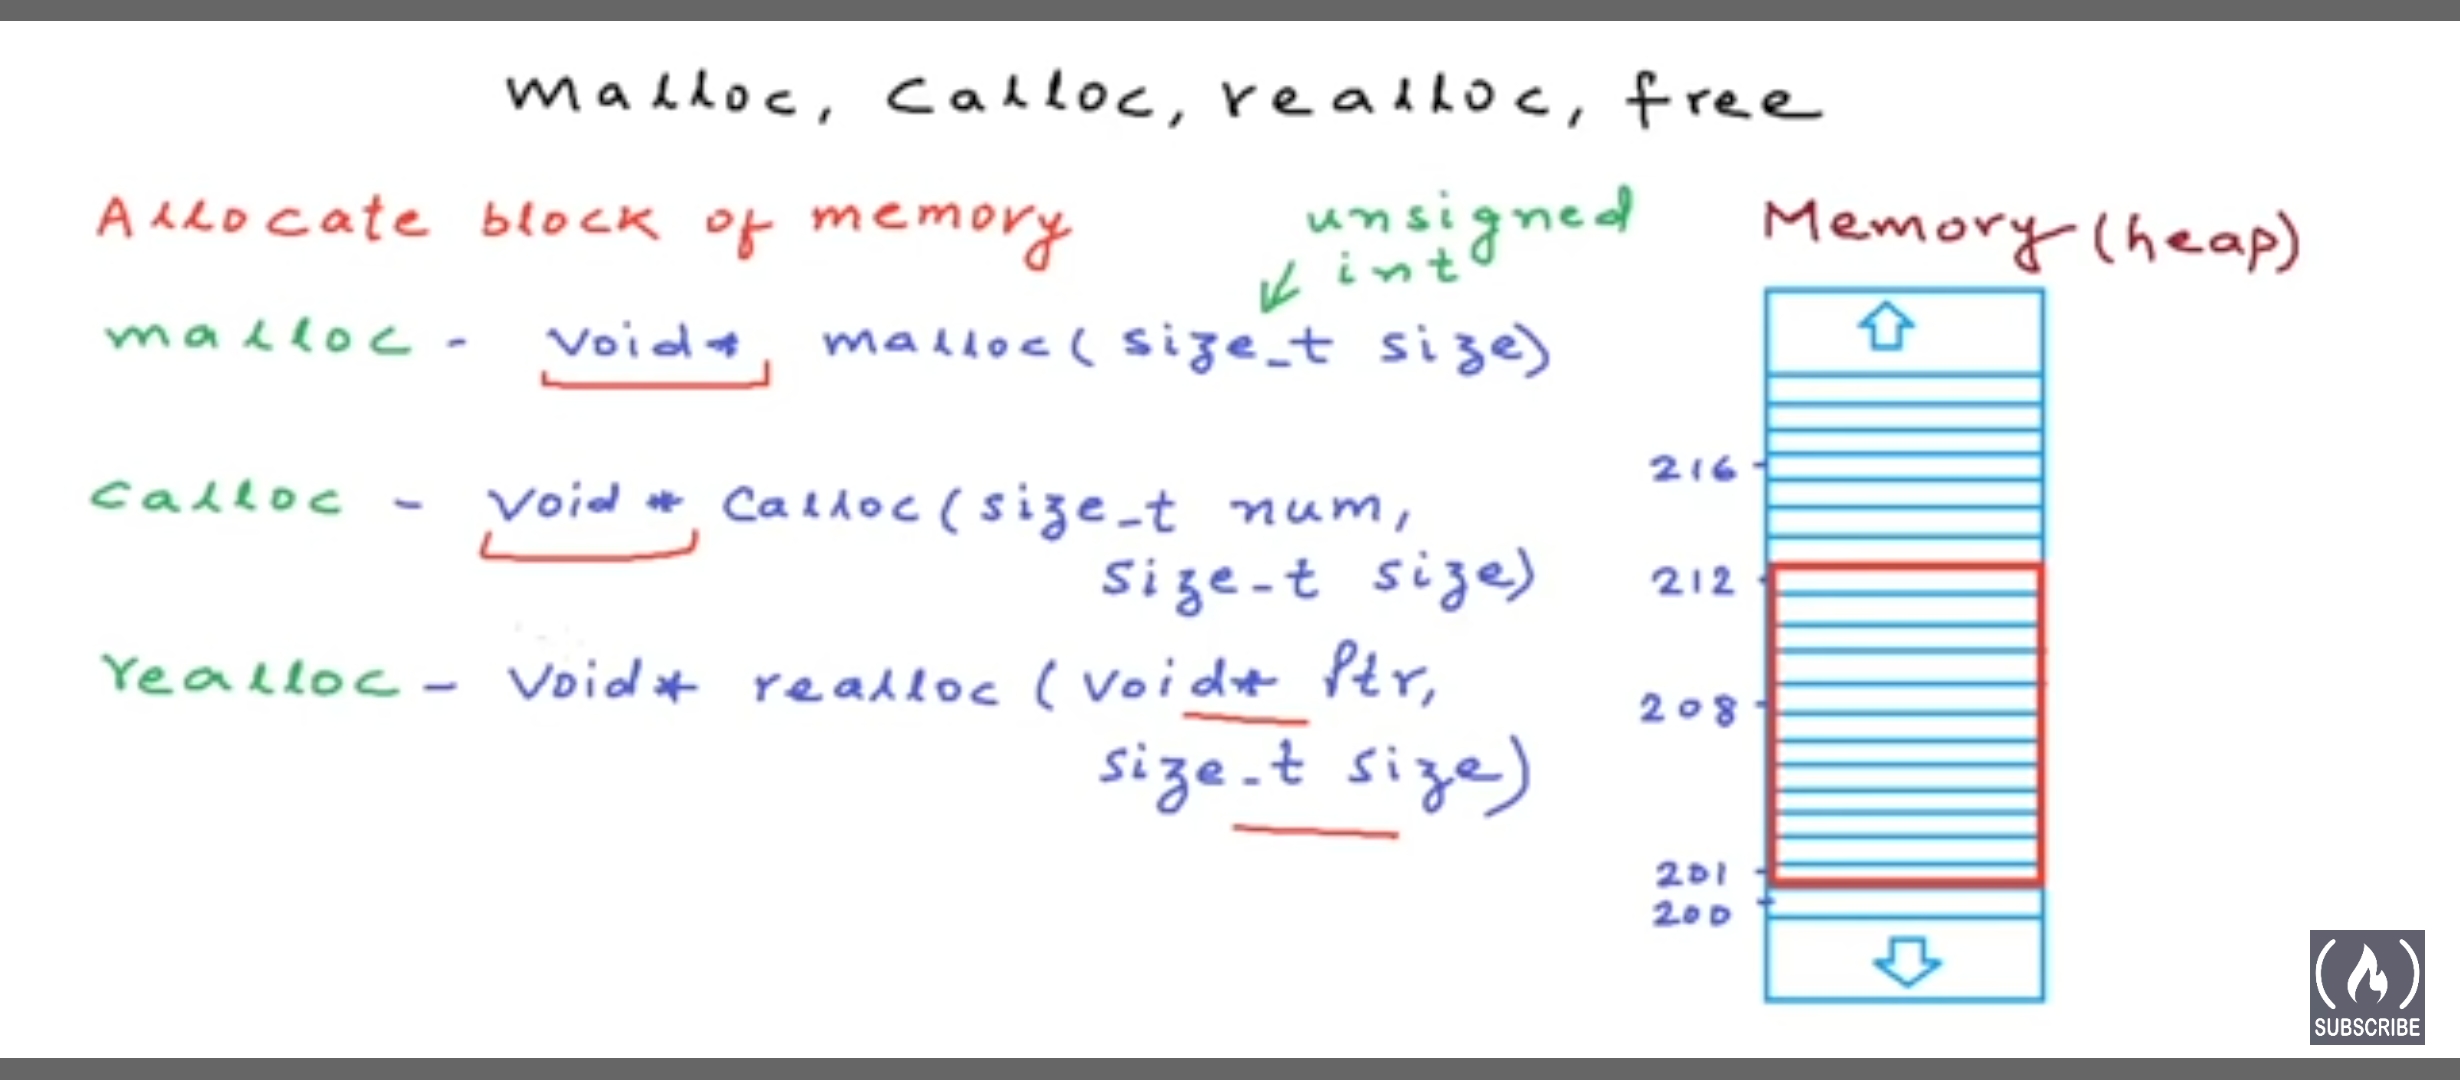 malloc, calloc, realloc, free
Allocate block of memory
unsigned
int
malloc - void* malloc(size_t size)
calloc - void * calloc(size_t num,
size_t size)
realloc - void* realloc (void* Ptr,
size_t size)
Memory (heap)
216
212
208
201
200
SUBSCRIBE